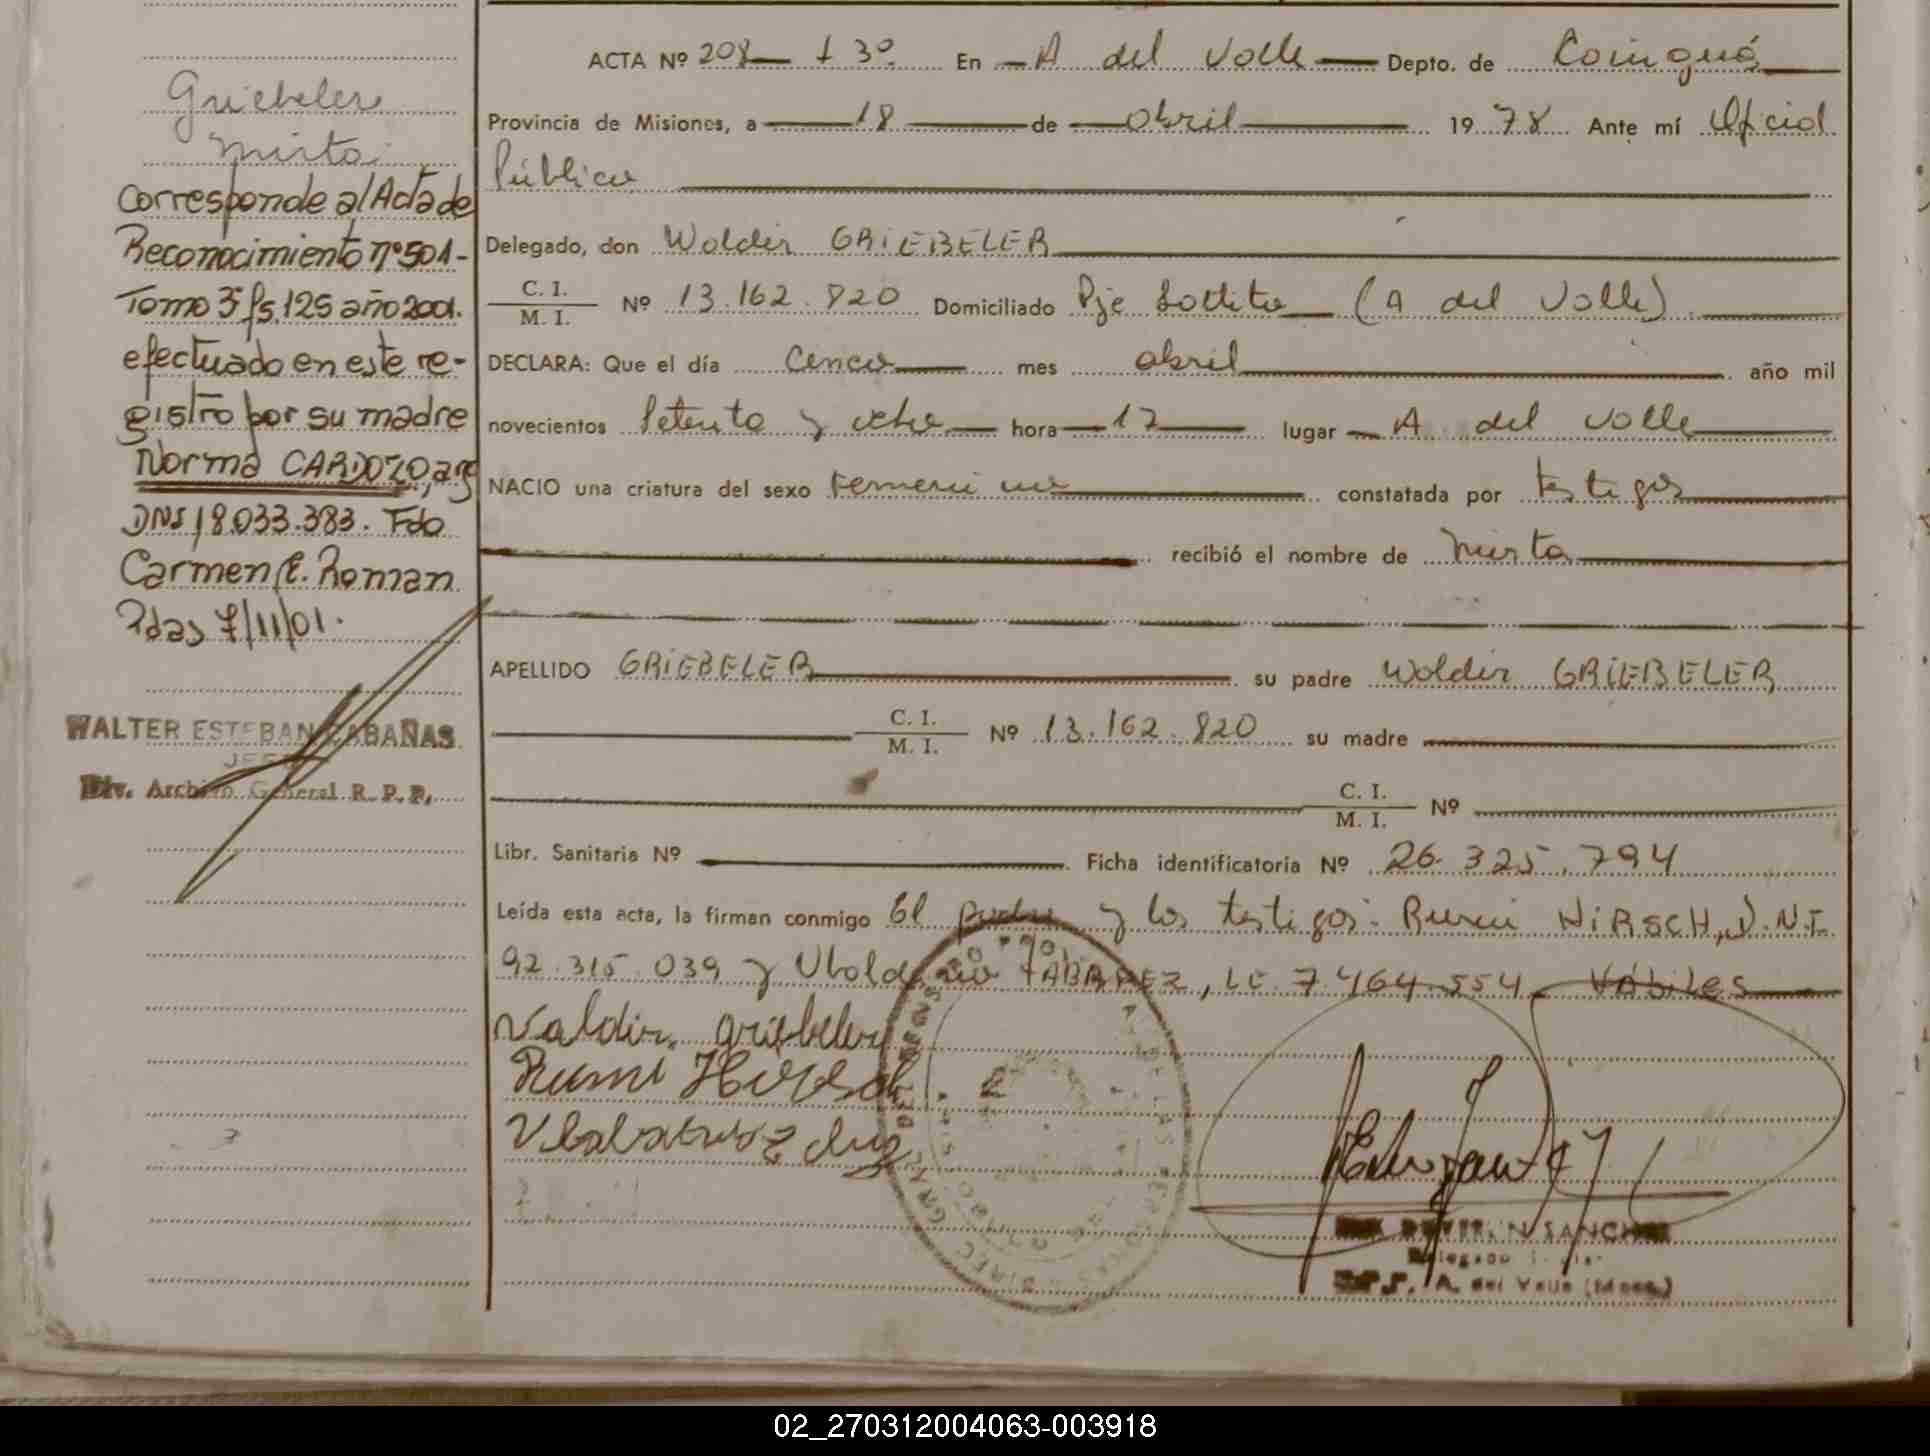 Griebeler
Mirta
Corresponde al Acta de
Reconocimiento nº 501-
Tomo 3º fs. 125 año 2001.
efectuado en este re-
gistro por su madre
Norma CARDOZO, arg
DNI 18.033.383. Fdo
Carmen E. Roman
Pdas 7/11/01.
WALTER ESTEBAN CABAÑAS
JEFE
Div. Archivo General R. P. P.
ACTA Nº 208 T 3º En A del Valle Depto. de Cainguás
Provincia de Misiones, a 18 de abril 1978 Ante mí Oficial
Público
Delegado, don Waldir GRIEBELER
C. I.
M. I. Nº 13.162.820 Domiciliado Pje Lottito (A del Valle)
DECLARA: Que el día cinco mes abril año mil
novecientos setenta y ocho hora 17 lugar A del Valle
NACIO una criatura del sexo Femenino constatada por testigos
recibió el nombre de Mirta
APELLIDO GRIEBELER su padre Waldir GRIEBELER
C. I.
M. I. Nº 13.162.820 su madre
C. I.
M. I. Nº
Libr. Sanitaria Nº Ficha identificatoria Nº 26.325.794
Leída esta acta, la firman conmigo El padre y los testigos: HIRSCH, D.N.I.
92.315.039 y TABAREZ, LE 7.464.554 VABILES
Valdir griebeler
Hirsch
SANCHEZ
Delegado
A. del Valle (Mnes.)
02_270312004063-003918